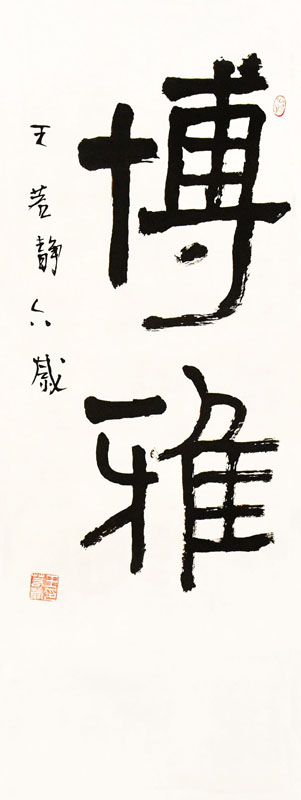 博雅
王若静六岁